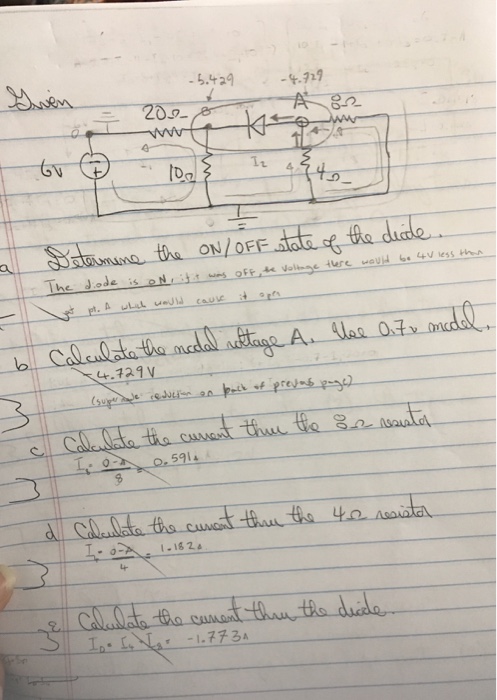 -5.429 -4.729
Given
20Ω B A 8Ω
6V 10Ω I₂ 4Ω
a Determine the ON/OFF state of the diode.
The diode is ON, if it was OFF, the voltage there would be 4V less than
pt. A which would cause it open
b Calculate the nodal voltage A. Use 0.7v model.
-4.729V
(supernode reduction on back of previous page)
3
c Calculate the current thru the 8Ω resistor
I₈ = 0-A/8 = 0.591A
3
d Calculate the current thru the 4Ω resistor
I₄ = 0-A/4 = 1.182A
3
e Calculate the current thru the diode.
3 I_D = I₄ I₈ = -1.773A